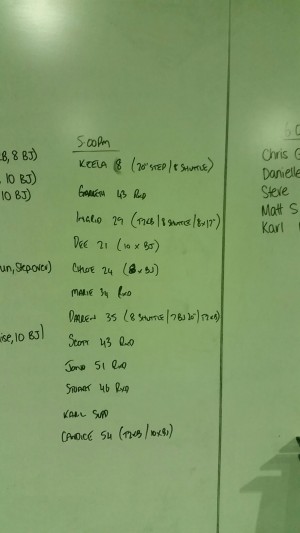 B, 8 BJ)
, 10 BJ)
10 BJ)
un, Stepover)
ise, 10 BJ)
5.00pm
KEELA 8 (20" STEP / 8 SHUTTLE)
GARRETH 43 RXD
29 (12KB / 8 SHUTTLE / 8x12")
DEE 21 (10 x BJ)
CHLOE 24 (8 x BJ)
MARIE 34 RXD
DARREN 35 (8 SHUTTLE / 7 BJ 20" / 12KB)
SCOTT 43 RXD
51 RXD
STUART 46 RXD
KARL
CANDICE 54 (12KB / 10xBJ)
Chris G
Danielle
Steve
Matt S
Karl